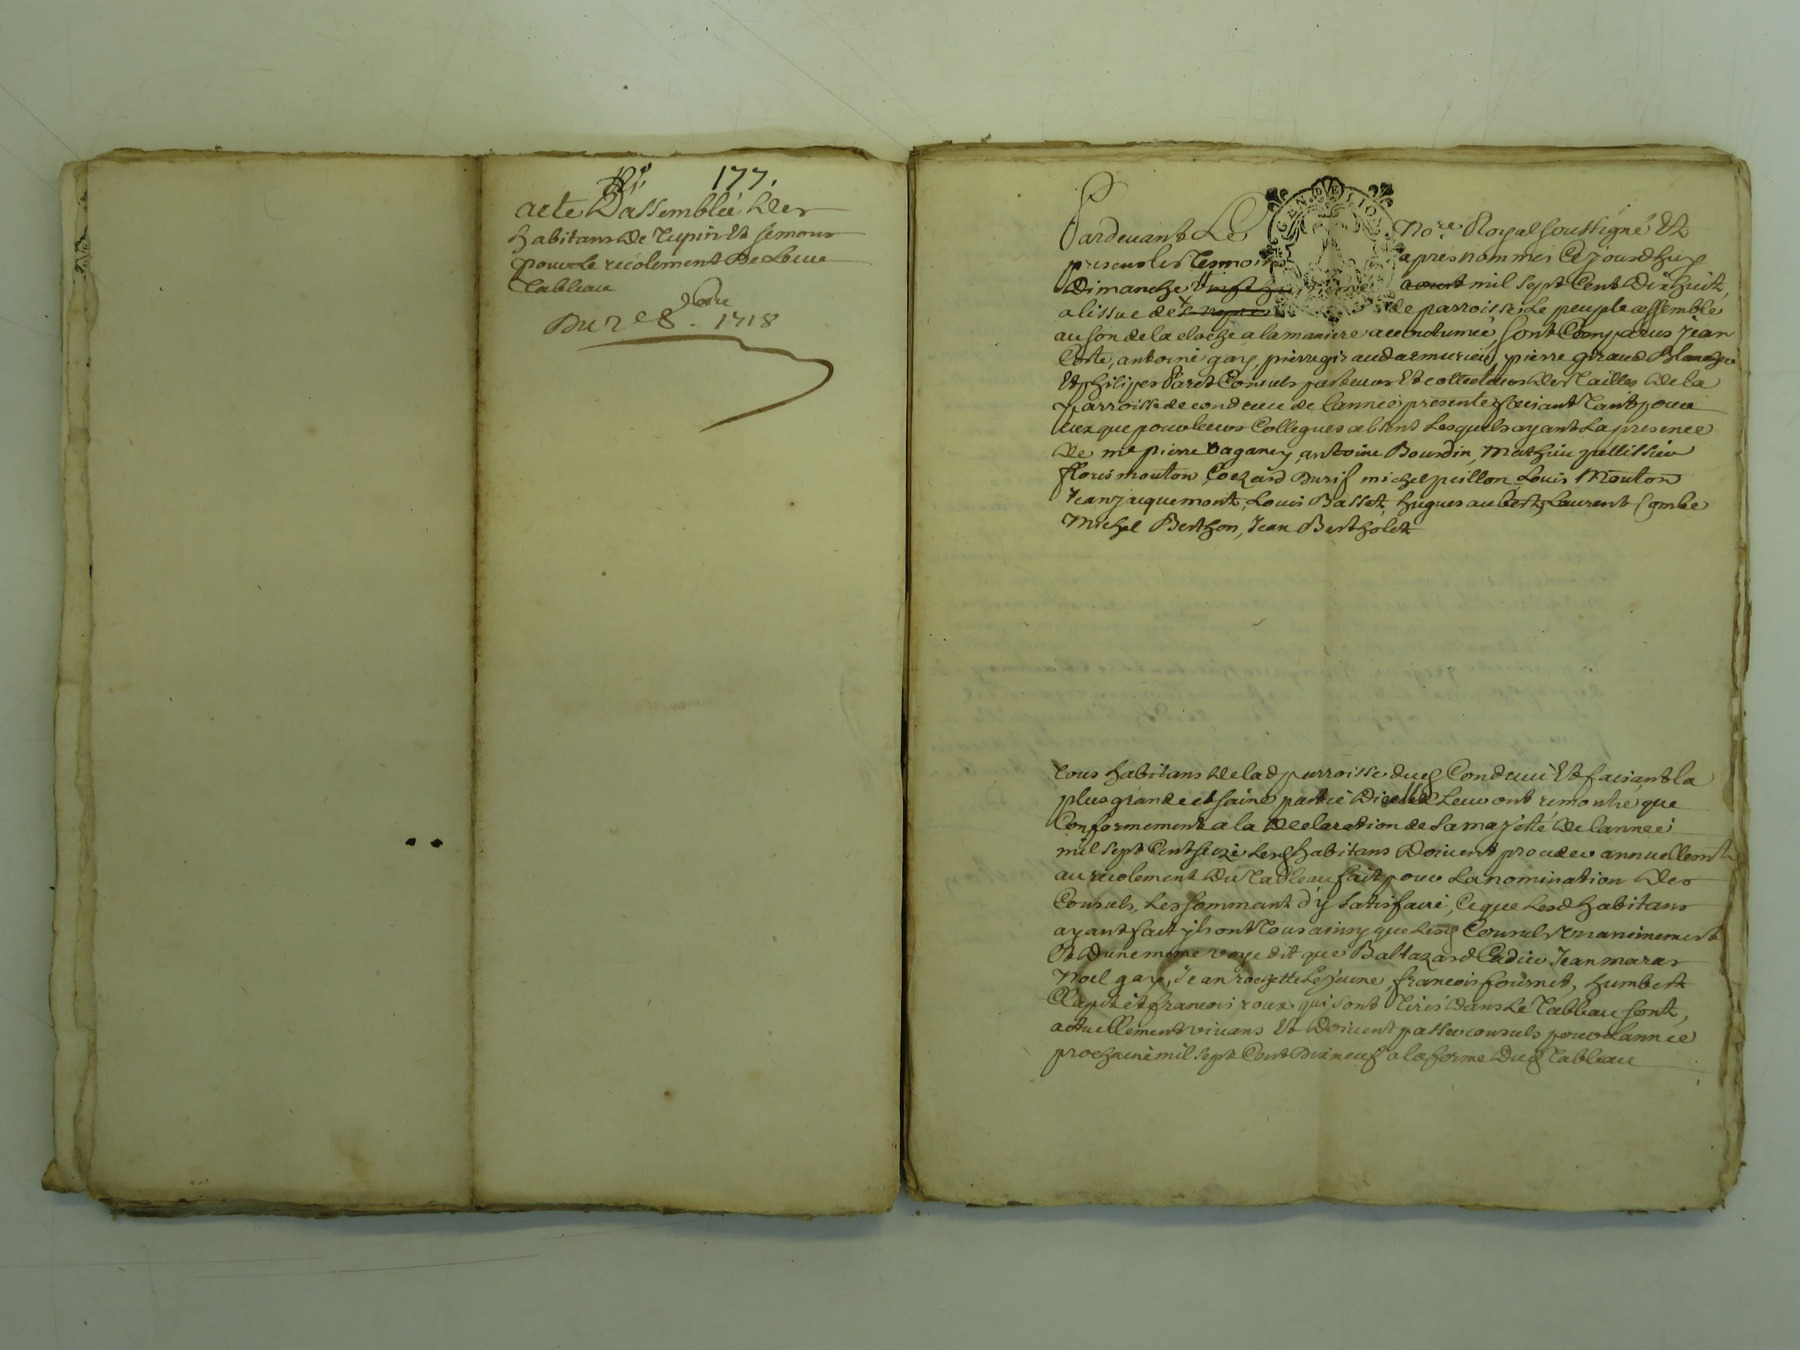 177.
acte Dassemblée Des
habitans De Tupin Et semons
pour Le recolement De Leur
Tableau
Du 2e 8bre 1718
GEN. DE LION
Pardevant Le No.re Royal soussigné Et
presens les Tesmoins apres nommés Cejourdhuy
Dimanche aoust mil sept Cent Dixhuit,
a lissue de vespres de parroisse Le peuple assemblé
au son de la cloche a la maniere accoutumée, sont Comparus Jean
Coste, antoine gay, pierre giraud pierre giraud Blanchon
Et philipes Paret Consuls perceveurs Et collecteurs Des Tailles De la
parroisse de condrieu de Lannée presente faisant Tant pour
eux que pour leurs Collegues absent Lesquels ayant La presence
De me pierre Daganey, antoine Bourdin, Mathieu pellissier
floris mouton, Durif michel peillon Louis Mouton
Jean jacquemont, Louis Basset, hugues aubert, Laurent Combe
Michel Berthon, Jean Bertholet
Tous habitans De lad parroisse dud Condrieu Et faisant la
plus grande et saine partie Dicelle Leur ont remontré que
Conformement a la Declaration de sa majesté De lannée
mil sept Cent seize Lesd habitans Doivent proceder annuellemt
au recolement Du Tableau fait pour La nomination Des
Consuls, Les sommant d'y satisfaire, Ce que Lesd habitans
ayant fait ils ont Tous ainsy que Lesd Consuls Unanimement
Et Dune meme voye dit que Baltazard Cadier Jean maras
Noel gay, Jean rochette Le jeune, francois fournet, humbert
Clapit et francois roux qui sont Tirés Dans Le Tableau sont,
actuellement vivans Et Doivent passer consuls pour Lannée
prochaine mil sept Cent Dixneuf a la forme Dud Tableau